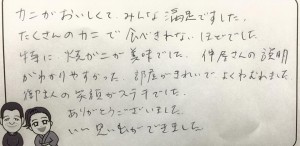 カニがおいしくて、みんな満足でした。
たくさんのカニで食べきれないほどでした。
特に、焼ガニが美味でした。仲居さんの説明
がわかりやすかった。部屋がきれいでよくねむれました
御主人の笑顔がステキでした。
ありがとうございました。
いい思い出ができました。